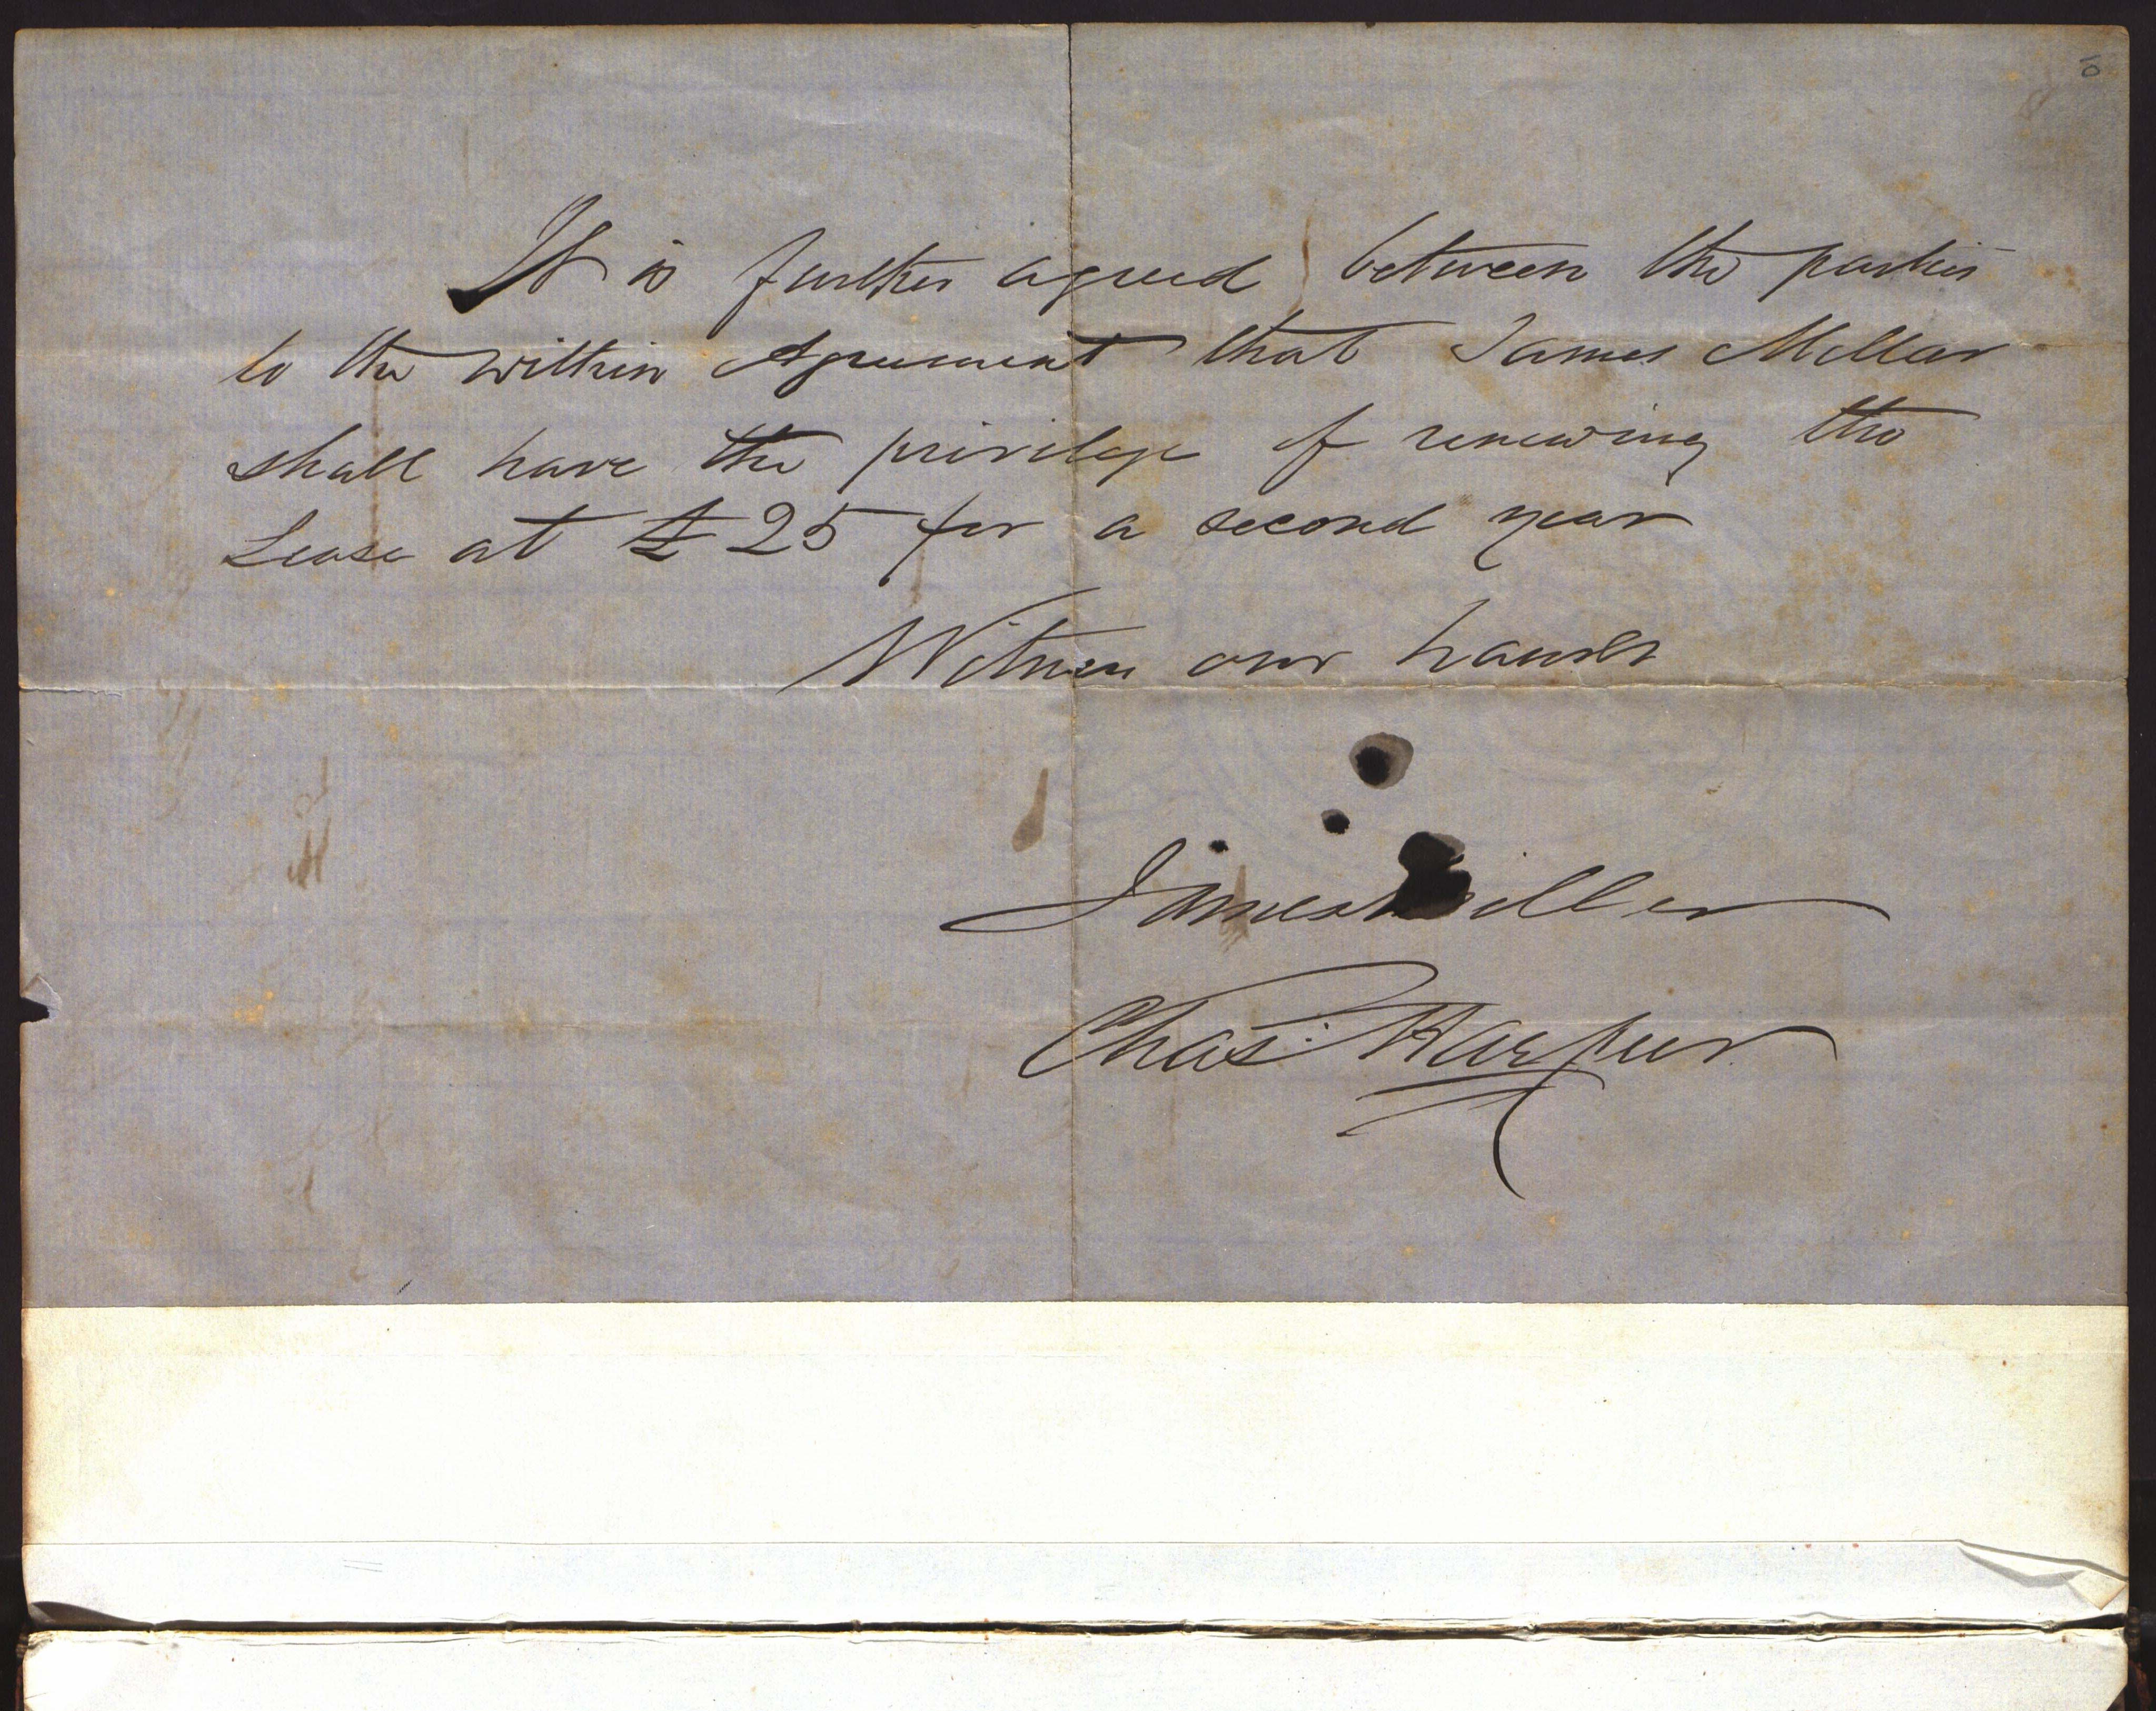 It is further agreed between the parties
to the within Agreement that James Millar
shall have the privilege of renewing the
Lease at £25 for a second year
Witness our hands
James Miller
Chas: Harpur